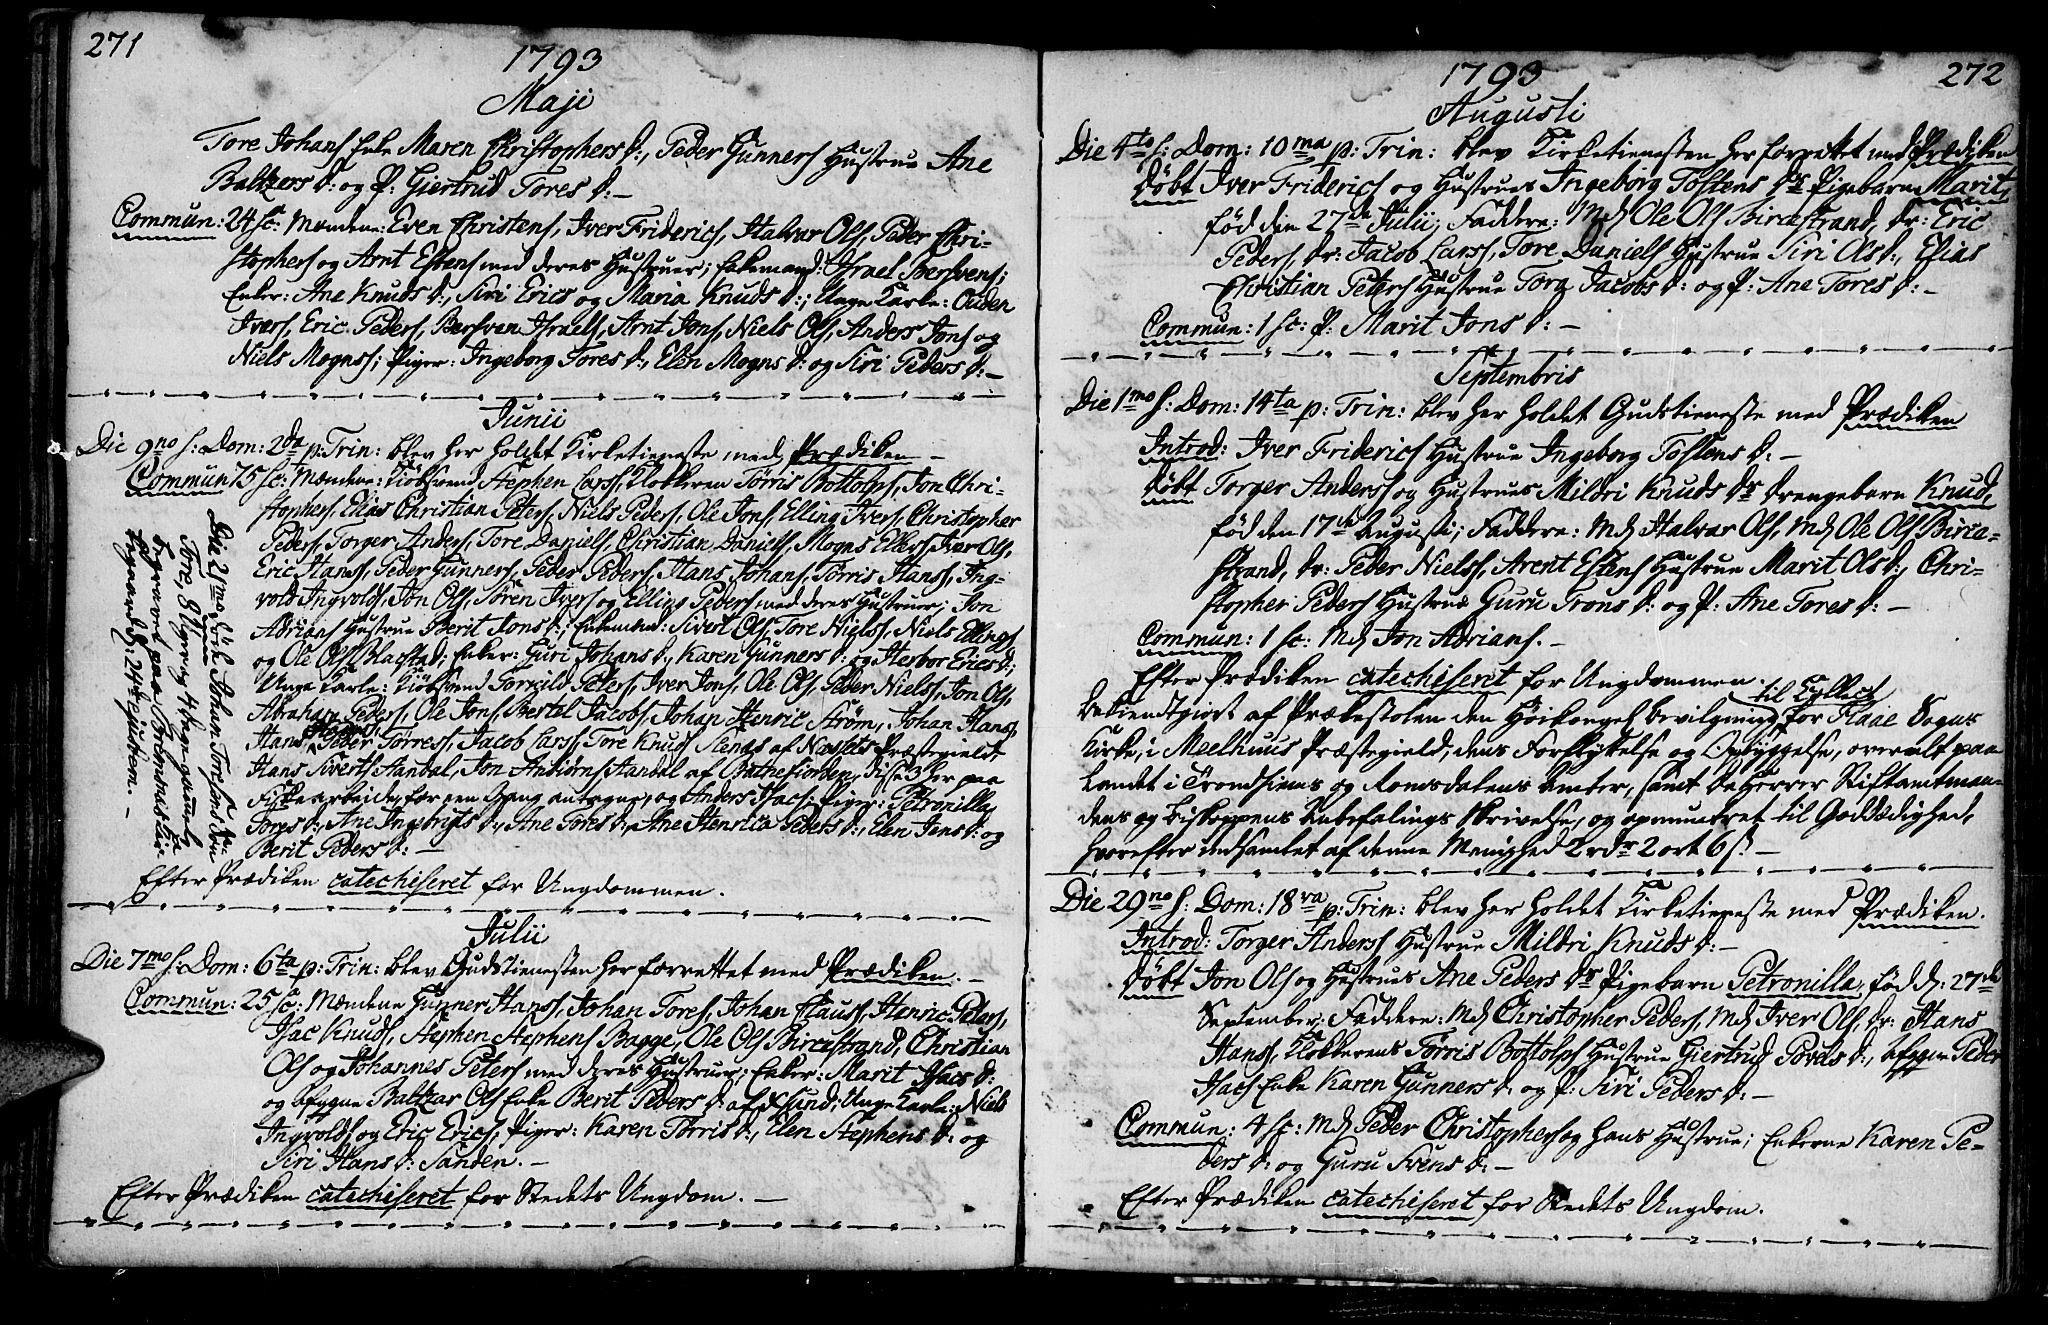 271
1793
Maji
Tore Johans Enke Maren Christophers D:, Peder Gunners Hustrue Ane
Baltzers D: og P: Giertrud Tores D: –
Commun: 24 sc: Mændene: Even Christens, Iver Friderichs, Halvar Ols, Peder Chri-
stophers og Arnt Estens med deres Hustruer; Enkemand: Israel Bersvens;
Enker: Ane Knuds D:, Siri Erics og Maria Knuds D:; Unge Karle: Ouden
Ivers, Eric Peders, Bersven Israels, Arnt Jons, Niels Ols, Anders Jons og
Niels Mognss; Piger: Ingeborg Tores D:, Elen Mogns D: og Siri Peders D: –
Junii
Die 9no s: Dom: 2da p: Trin: blev her holdet Kirketieneste med Prædiken –
Commun 75 sc: Mændene: Kiøbsvend Stephen Larss, Klokkeren Tørris Bottolfs, Jon Chri-
stophers, Elias Christian Peters, Niels Peders, Ole Jons, Elling Ivers, Christopher
Peders, Torger Anders, Tore Daniels, Christian Daniels, Mogns Ellers, Iver Ols,
Eric Hanss, Peder Gunners, Peder Peders, Hans Johans, Tørris Hanss, Ing-
vold Ingvolds, Jon Ols, Søren Ivers og Elling Peders med deres Hustruer; Jon
Adrians Hustrue Berit Jons D:; Enkemænd: Sivert Ols, Tore Nielss, Niels Ellings
og Ole Ols Blakstad; Enker: Guri Johans D:, Karen Gunners D: og Herbor Erics D:;
Unge Karle: Kiøbsvend Torkild Peters, Iver Jons, Ole Ols, Peder Nielss, Jon Ols,
Abraham Peders, Ole Jons, Bertel Jacobs, Johan Henric Strøm, Johan Hans,
Hans Peder Tørress, Jacob Larss, Tore Knuds Stenæs af Næssets Præstegield,
Hans Siverts Aandal, Jon Anbiørns Aandal af Batnefiorden, disse 3 her paa
Fiskearbeide, for een Gang antagne, og Anders Isacs; Piger: Petronilla
Tores D:, Ane Ingebrigts D:, Ane Tores D:, Ane Henrica Peders D:, Elen Jens D: og
Berit Peders D: –
Efter Prædiken catechiseret for Ungdommen.
Die 21mo døde Johan Toresens Søn
Tore, 8 Uger og 4 Dage gammel,
begravet paa Bremsnæs Kir-
kegaard d: 24de ejusdem. –
Julii
Die 7mo s: Dom: 6ta p: Trin: blev Gudstienesten her forrettet med Prædiken. –
Commun: 25 sc: Mændene Gunner Hanss, Johan Tores, Johan Clauss, Henric Peters,
Isac Knuds, Stephen Stephens Bagge, Ole Ols Bircestrand, Christian
Ols og Johannes Peters med deres Hustruer; Enker: Marit Isacs D:
og afgangne Baltzar Ols Enke Berit Peders D: af Sund; Unge Karle: Niels
Ingvolds og Eric Erics, Piger: Karen Tørris D:, Elen Stephens D: og
Siri Hans D: Sanden. –
Efter Prædiken catechiseret for Stedets Ungdom. –
272
1793
Augusti
Die 4to s: Dom: 10ma p: Trin: blev Kirketienesten her forrettet med Prædiken
Døbt Iver Friderichs og Hustrues Ingeborg Tostens Drs Pigebarn Marit,
fød den 27de Julii; Faddere: Md Ole Ols Bircestrand, Dr: Eric
Peders, Dr: Jacob Larss, Tore Daniels Hustrue Siri Ols D:, Elias
Christian Peters Hustrue Tora Jacobs D: og P: Ane Tores D: –
Commun: 1 sc: P: Marit Jons D: –
Septembris
Die 1mo s: Dom: 14ta p: Trin: blev her holdet Gudstieneste med Prædiken
Introd: Iver Friderichs Hustrue Ingeborg Tostens D: –
Døbt Torger Anderss og Hustrues Mildri Knuds Dr Drengebarn Knud,
fød den 17de Augusti; Faddere: Md Halvar Ols, Md Ole Ols Birce-
strand, Dr: Peder Nielss, Arent Estens Hustrue Marit Ols D:, Chri-
stopher Peders Hustrue Guru Trons D: og P: Ane Tores D: –
Commun: 1 sc: Md Jon Adrians. –
Efter Prædiken catechiseret for Ungdommen.
Bekiendtgiort af Prækestolen den Høikongel: bevilgning til Collect for Flaae Sogns
Kirke, i Meelhuus Præstegield, dens Forflyttelse og Ombyggelse, overalt paa
Landet i Trondhiems og Romsdalens Amter, samt De Herrer Stiftamtman-
dens og Biskoppens Anbefalings Skrivelse, og opmuntret til Goddædighed,
hvorefter indsamlet af denne Menighed 2 rdr 2 ort 6 s. –
Die 29no s: Dom: 18va p: Trin: blev her holdet Kirketieneste med Prædiken.
Introd: Torger Anderss Hustrue Mildri Knuds D: –
Døbt Jon Ols og Hustrues Ane Peders Dr Pigebarn Petronilla, fød d: 27de
September: Faddere: Md Christopher Peders, Md Iver Ols, Dr: Hans
Hanss, Klokkerens Tørris Bottolfs Hustrue Giertrud Povels D:, afgagne Peder
Isacs Enke Karen Gunners D: og P: Siri Peders D: –
Commun: 4 sc: Md Peder Christophers og hans Hustrue; Enkerne Karen Pe-
ders D: og Guru Svens D: –
Efter Prædiken catechiseret for Stedets Ungdom.